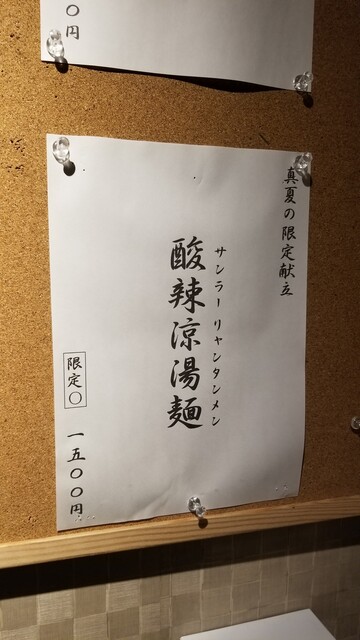 〇円
真夏の限定献立
サンラーリャンタンメン
酸辣涼湯麺
限定〇
一五〇〇円